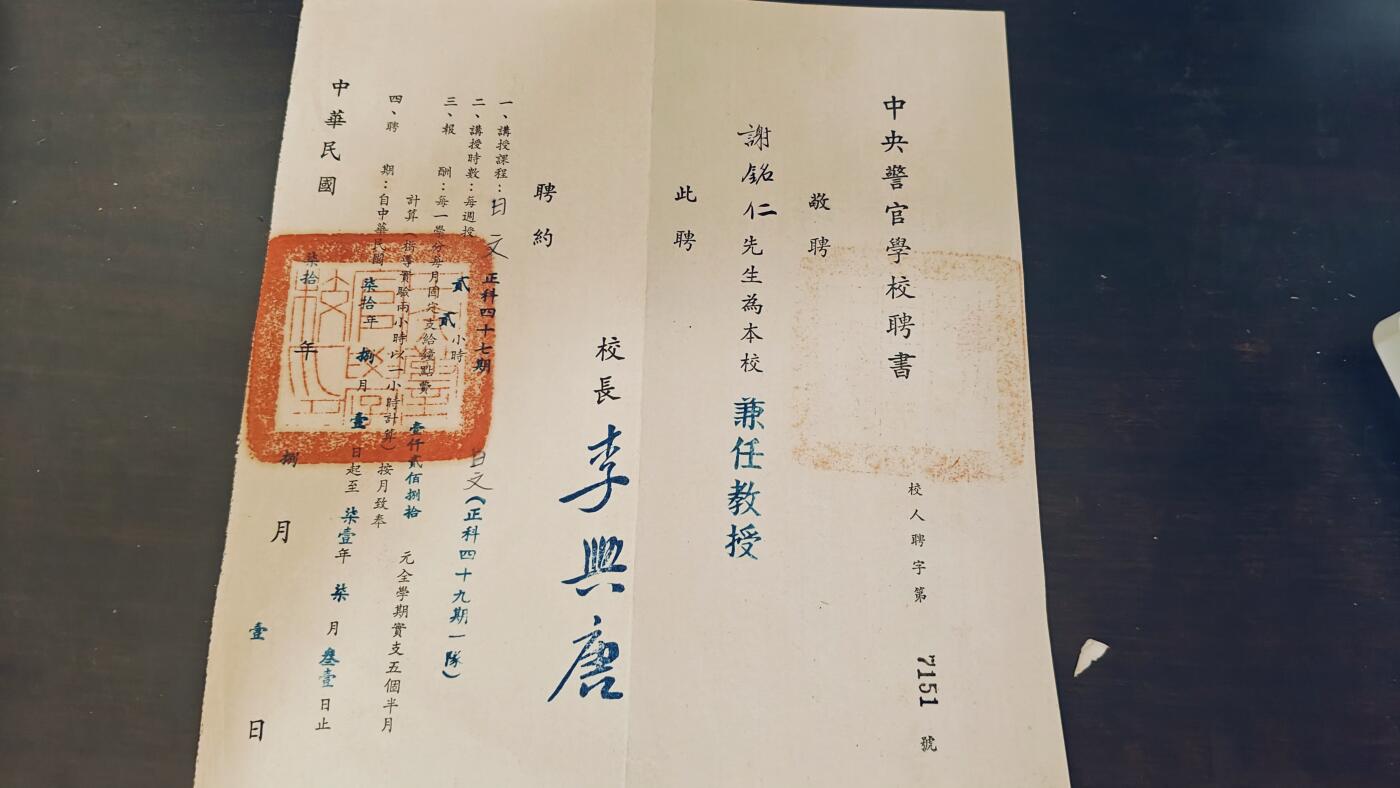 中央警官學校聘書
校人聘字第 7151 號
敬聘
謝銘仁先生為本校兼任教授
此聘
校長李興唐
聘約
一、講授課程：日文 正科四十七期 日文（正科四十九期一隊）
二、講授時數：每週授 貳 貳 小時
三、報酬：每一學分每月固定支給鐘點費 壹仟貳佰捌拾 元全學期實支五個半月
計算（指導實驗兩小時以一小時計算）按月致奉
四、聘期：自中華民國 柒拾年 捌月 壹日起至 柒壹年 柒月 叁壹日止
中華民國 柒拾年 捌月 壹日